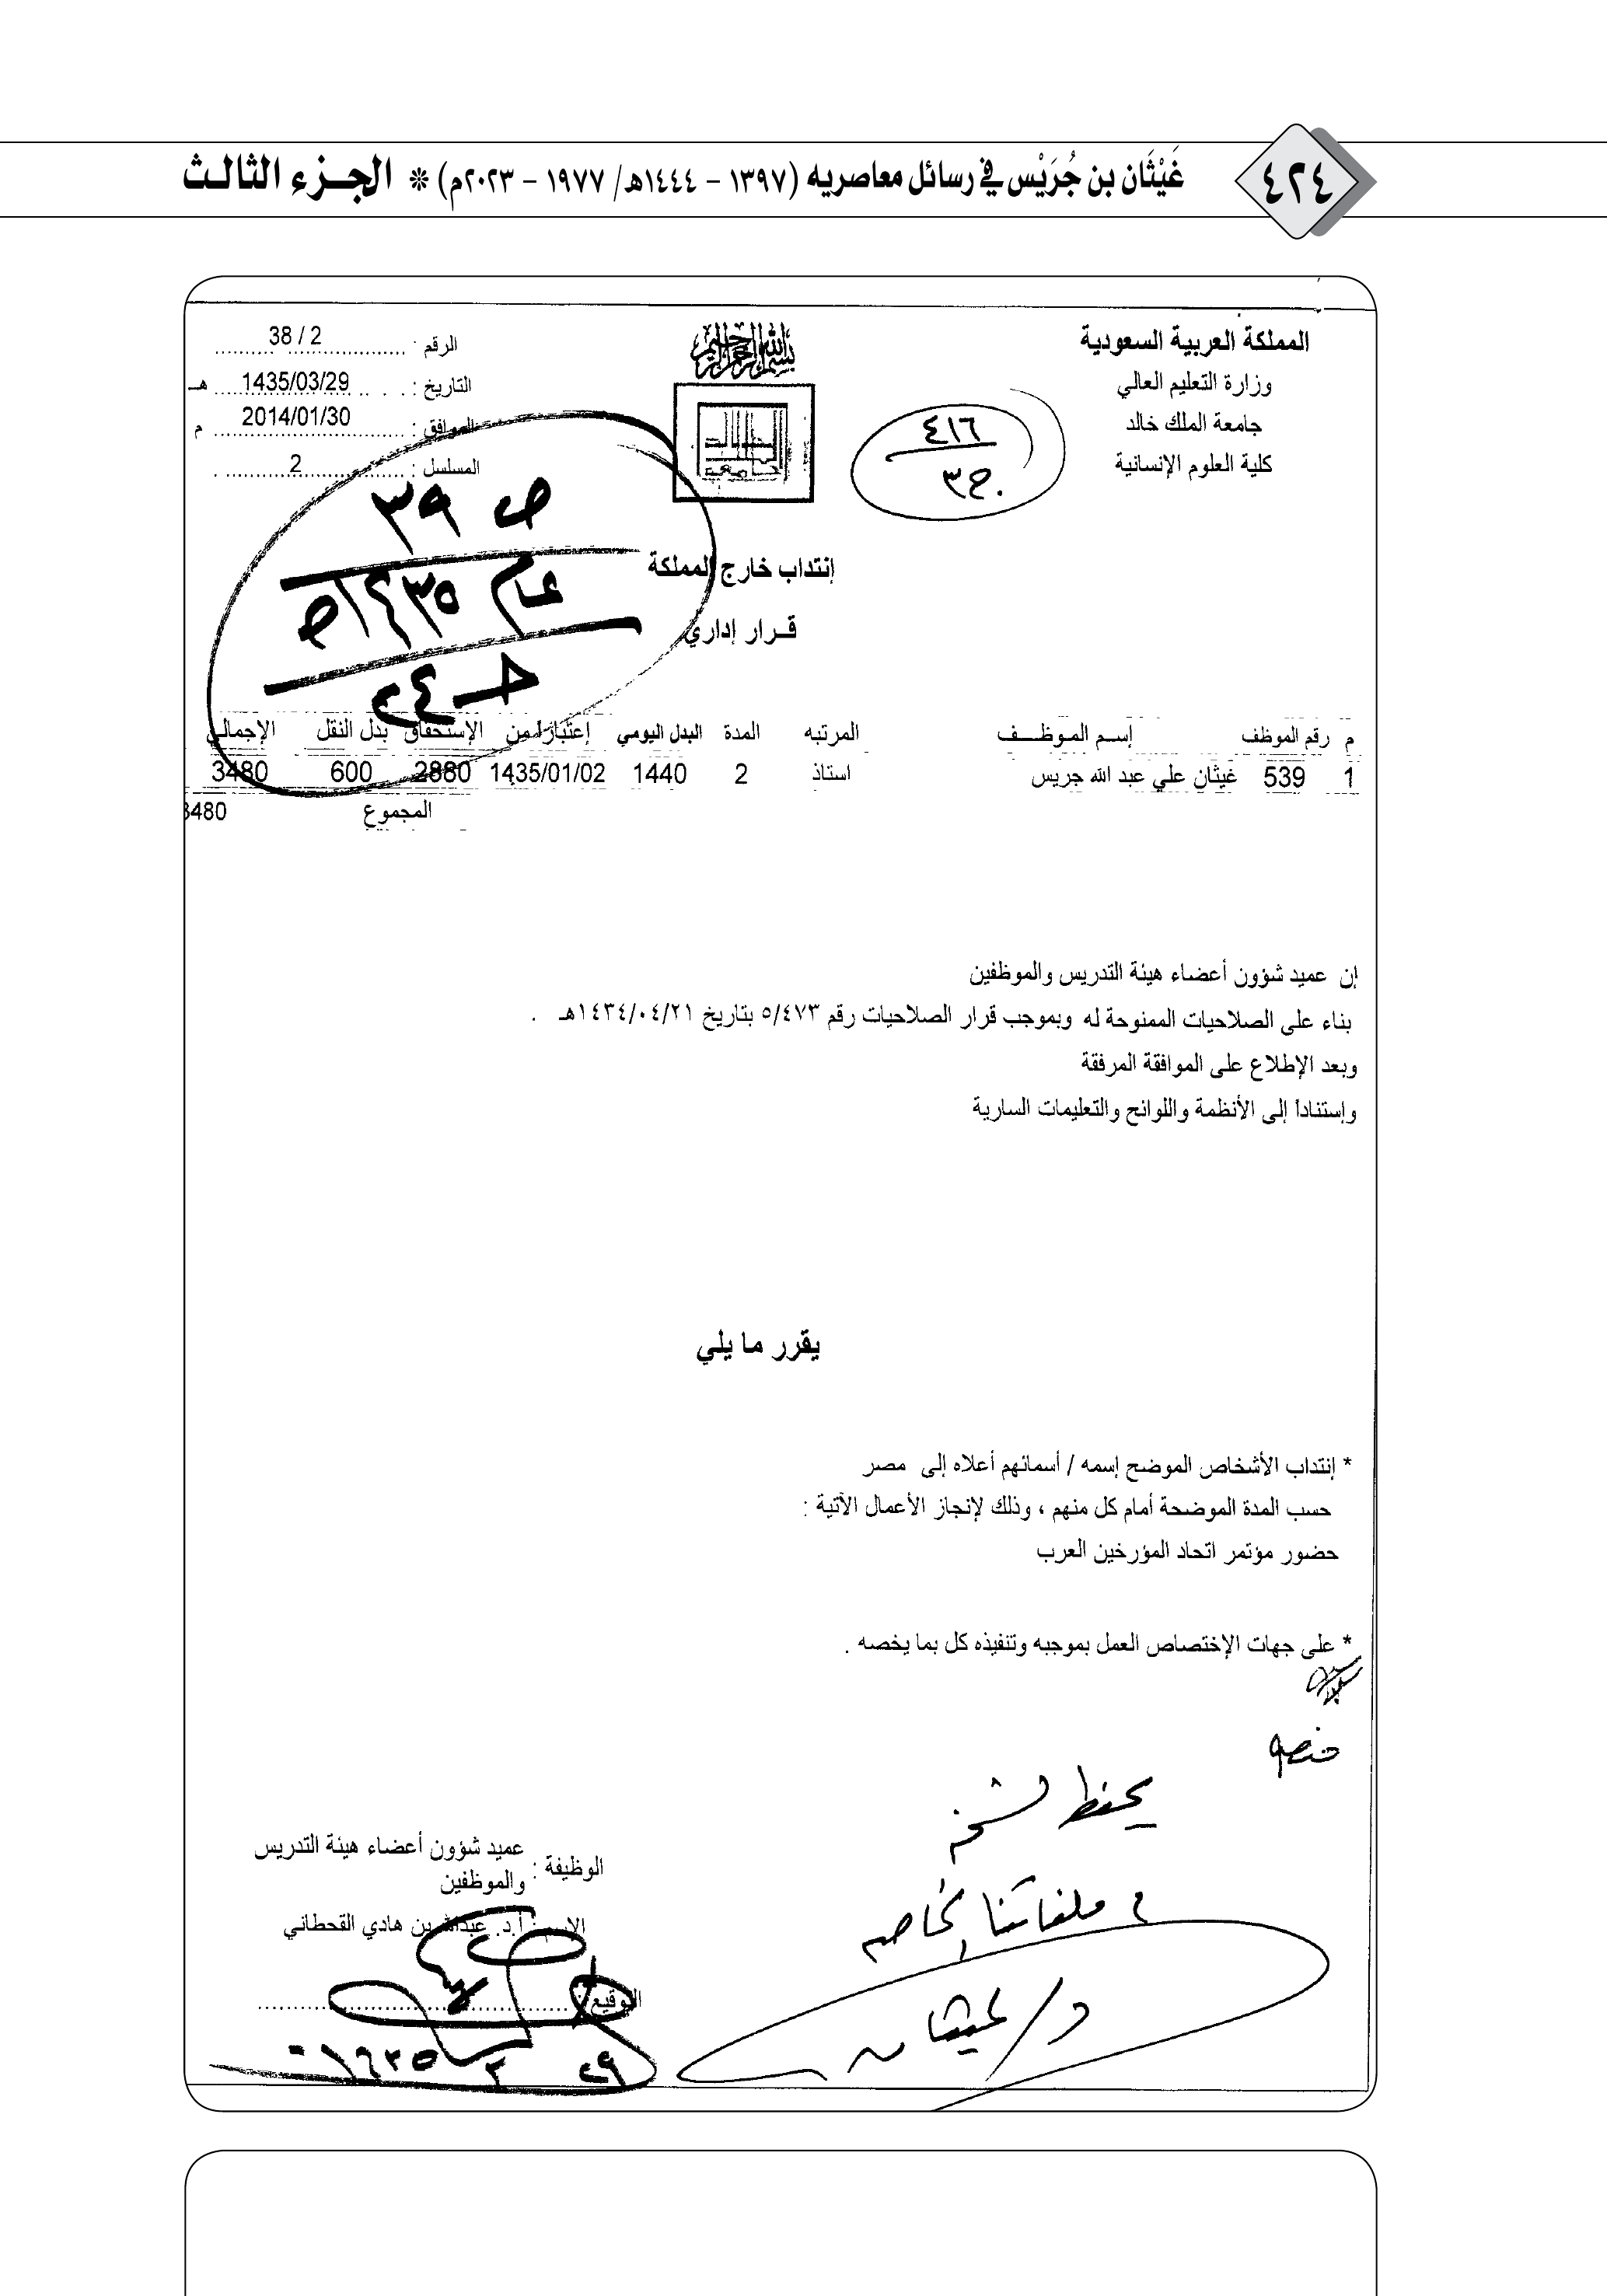 ٤٢٤
غَيْثَان بن جُرَيْس في رسائل معاصريه (١٣٩٧ - ١٤٤٤هـ/ ١٩٧٧ - ٢٠٢٣م) * الجـزء الثالـث
المملكة العربية السعودية
وزارة التعليم العالي
جامعة الملك خالد
كلية العلوم الإنسانية
بسم الله الرحمن الرحيم
الرقم : 38 / 2
التاريخ : 1435/03/29 هـ
الموافق : 2014/01/30 م
المسلسل : 2
٤١٦
ج٣
ص ٣٩
عام ١٤٣٥هـ
إنتداب خارج المملكة
قـرار إداري
م رقم الموظف إسـم المـوظـــف المرتبه المدة البدل اليومي إعتباراً من الإستحقاق بدل النقل الإجمالي
1 539 غيثان علي عبد الله جريس استاذ 2 1440 1435/01/02 2880 600 3480
المجموع 3480
إن عميد شؤون أعضاء هيئة التدريس والموظفين
بناء على الصلاحيات الممنوحة له وبموجب قرار الصلاحيات رقم ٥/٤٧٣ بتاريخ ١٤٣٤/٠٤/٢١هـ .
وبعد الإطلاع على الموافقة المرفقة
وإستناداً إلى الأنظمة واللوائح والتعليمات السارية
يقرر ما يلي
* إنتداب الأشخاص الموضح إسمه / أسمائهم أعلاه إلى مصر
حسب المدة الموضحة أمام كل منهم ، وذلك لإنجاز الأعمال الآتية :
حضور مؤتمر اتحاد المؤرخين العرب
* على جهات الإختصاص العمل بموجبه وتنفيذه كل بما يخصه .
يحفظ
ملفاتنا الخاصه
د/ غيثان
الوظيفة : عميد شؤون أعضاء هيئة التدريس
والموظفين
الإسم : أ.د. عبدالله بن هادي القحطاني
التوقيع :
٢٩ ٣ ١٤٣٥